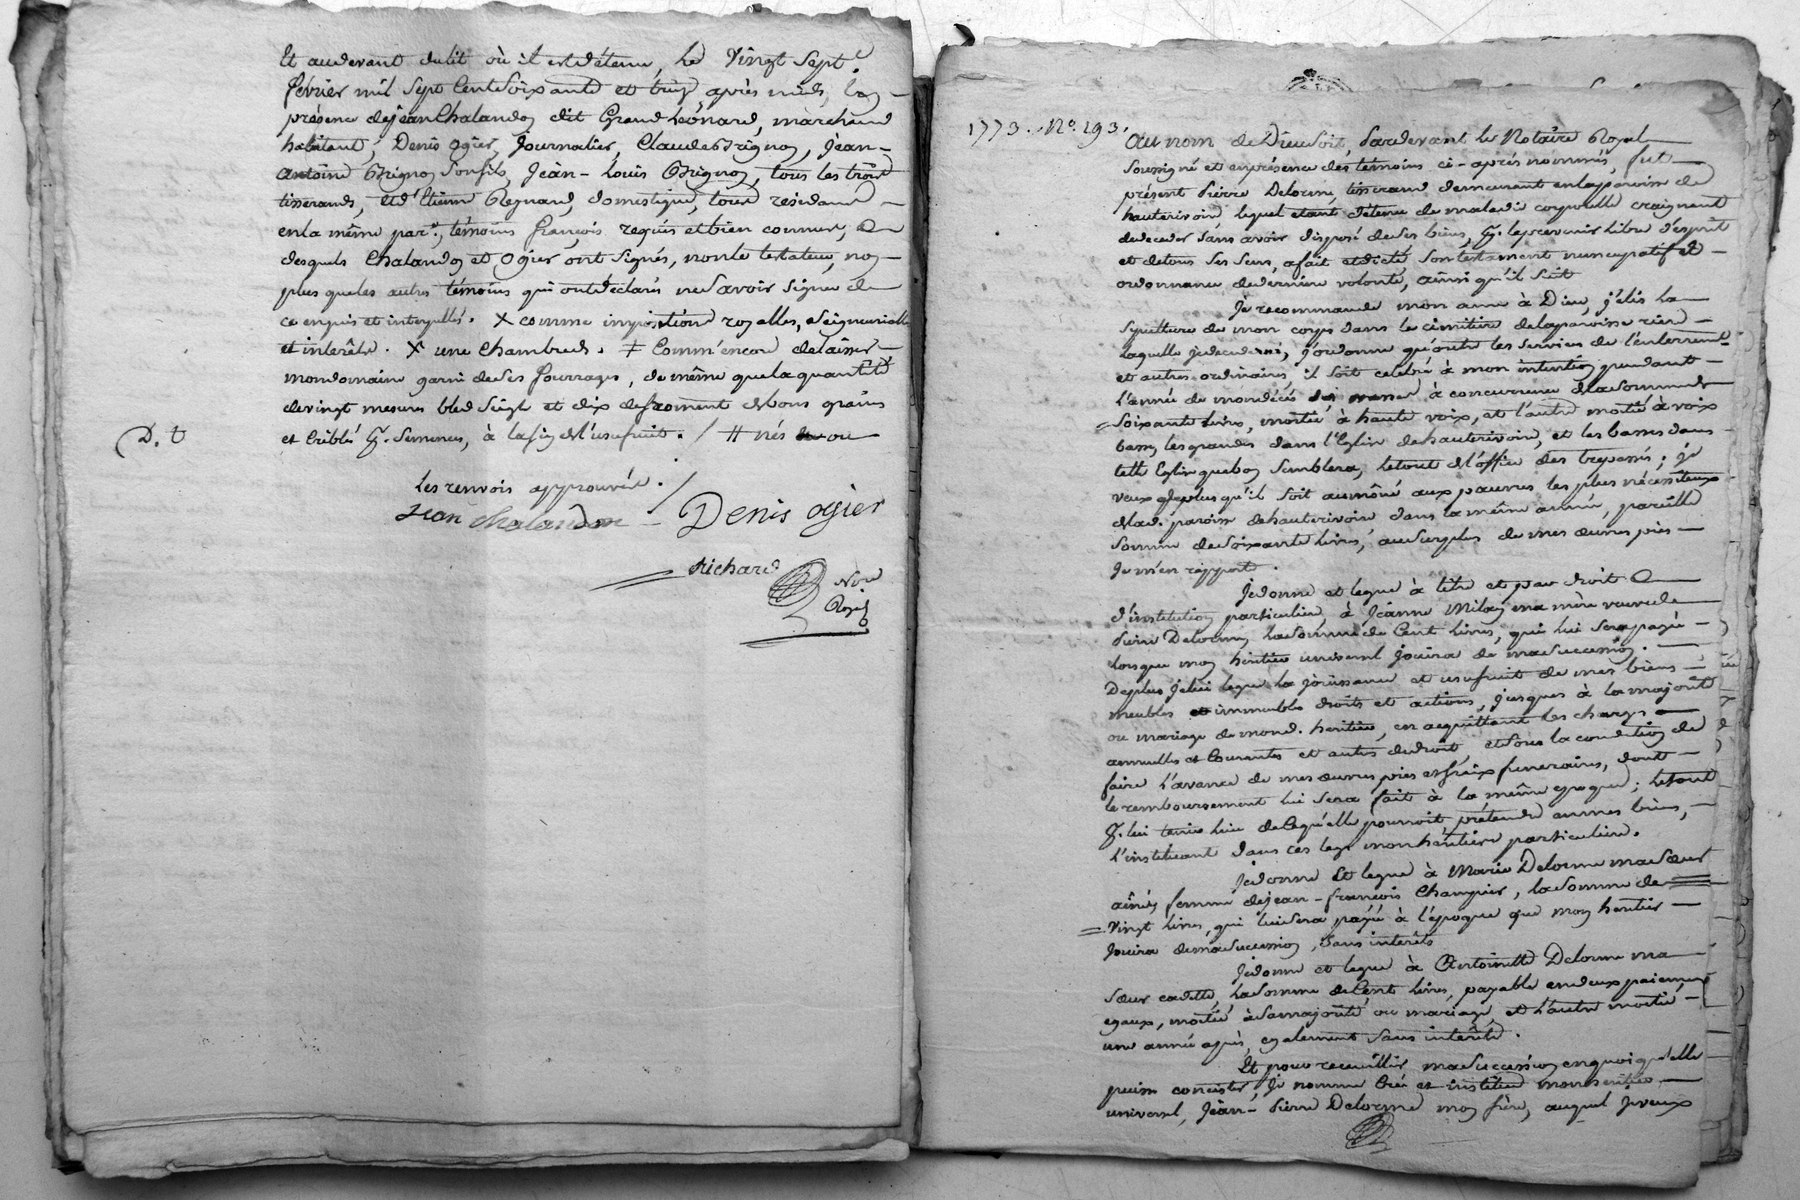 Et audevant du lit où il est détenu, le Vingt Sept
février mil Sept Cent Soixante et treize, après midi, En
présence de jean Chalandon dit Grand Léonard, marchand
habitant, Denis Ogier, Journalier, Claude Brignon, Jean-
antoine Brignon Son fils, Jean-Louis Brignon, tous les trois
tisserands, et d'Etienne Regnard, domestique, tous résidans
en la même par.e, témoins françois requis et bien connus,
desquels Chalandon et Ogier ont Signés, non le testateur, non
plus que les autres témoins qui ont déclarés ne Savoir Signer de
ce enquis et interpellés. X comme impositions royalles, Seigneurialles
et interêts. X une Chambre de. ‡ Comm'encore de laisser
mon domaine garni de Ses fourrages, de même que la quantité
de vingt mesures bled Seigle et dix de froment de bons grains
et Criblé p. Semences, à la fin de l'usufruit. / # nés ou
D. t
Les renvois approuvés.
Jean chalandon Denis ogier
Richard
No.re
Royal
1773. N.o 193.
Au nom de Dieu Soit, Pardevant le Notaire Royal
Soussigné et en présence des témoins ci-après nommés, fut
présent Pierre Delorme, tisserand demeurant en la paroisse de
hauterivoire, lequel etant détenu de maladie corporelle craignant
de deceder Sans avoir disposé de Ses biens, p. le present libre d'esprit
et de tous Ses Sens, a fait et dicté Son testament nuncupatif et
ordonnance de derniere volonté, ainsi qu'il Suit
Je recommande mon ame à Dieu, j'élis la
Sepulture de mon corps dans le cimitiere de la paroisse riere
laquelle je decederai, j'ordonne qu'outre les Services de l'enterrement
et autres ordinaires il Soit celebré à mon intention pendant
l'année de mon décés des messes à concurrence de la Somme de
Soixante livres, moitié à haute voix, et l'autre moitié à voix
basse, les grandes dans l'Eglise de hauterivoire, et les basses dans
telle Eglise que bon Semblera, le tout de l'office des trepassés; je
veux de plus qu'il Soit aumôné aux pauvres les plus nécessiteux
de lad. paroisse de hauterivoire dans la même année, pareille
Somme de Soixante livres, au Surplus de mes œuvres pies
Je m'en rapporte.
Je donne et legue à titre et par droit
d'institution particuliere, à Jeanne Milan ma mère veuve de
Pierre Delorme, la Somme de Cent livres, qui lui Sera payée
lorsque mon héritier universel jouira de ma Succession.
De plus je lui legue la jouissance et usufruit de mes biens
meubles et immeubles droits et actions, jusques à la majorité
ou mariage de mond. heritier, en acquittant les charges
annuelles et Courantes et autres de droit et Sous la condition de
faire l'avance de mes œuvres pies et fraix funeraires, dont
le remboursement lui Sera fait à la même epoque; le tout
p. lui tenir lieu de ce qu'elle pourroit prétendre en mes biens,
l'instituant dans ces legs mon héritiere particuliere.
Je donne et legue à Marie Delorme ma Sœur
aînée, femme de jean-françois Champier, la Somme de
Vingt livres, qui lui Sera payée à l'époque que mon heritier
jouira de ma Succession, Sans interêts
Je donne et legue à Antoinette Delorme ma
Sœur cadette, la Somme de Cent livres, payable en deux paiements
egaux, moitié à Sa majorité ou mariage, et l'autre moitié
une année après, egalement Sans interêts.
Et pour recueillir ma Succession en quoi qu'elle
puisse consister, Je nomme Créé et institue mon héritier
universel, Jean-Pierre Delorme mon frère, auquel je veux